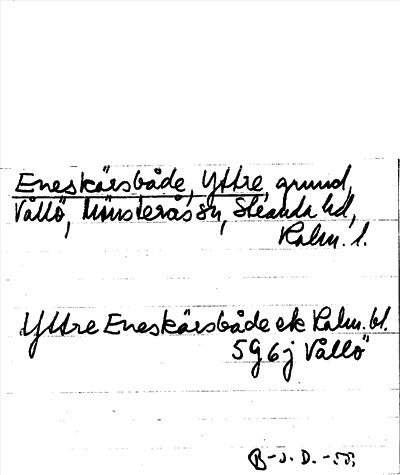 Eneskärsbåde, Yttre, grund,
Vållö, Mönsterås sn, Stranda hd,
Kalm. l.
Yttre Eneskärsbåde ek Kalm. bl.
5G 6j Vållö